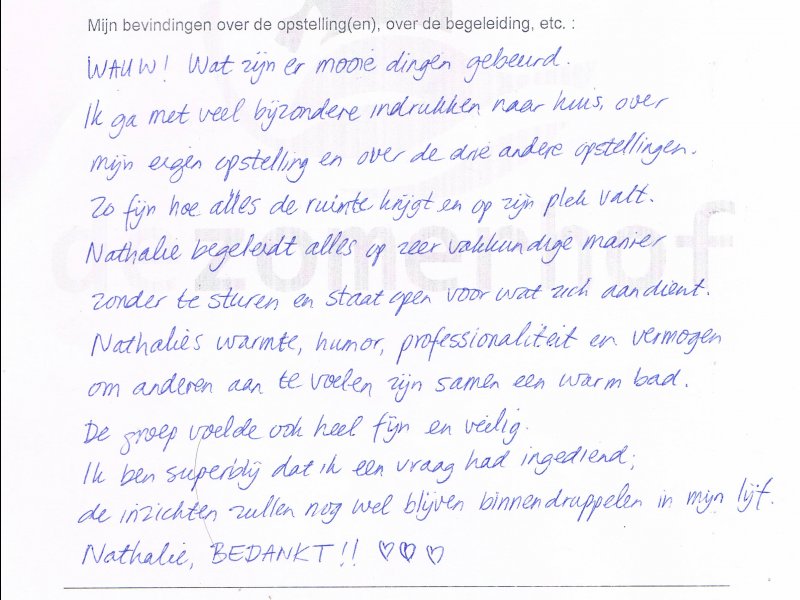 Mijn bevindingen over de opstelling(en), over de begeleiding, etc. :
WAUW! Wat zijn er mooie dingen gebeurd.
Ik ga met veel bijzondere indrukken naar huis, over
mijn eigen opstelling en over de drie andere opstellingen.
Zo fijn hoe alles de ruimte krijgt en op zijn plek valt.
Nathalie begeleidt alles op zeer vakkundige manier
dezomerhof
zonder te sturen en staat open voor wat zich aandient.
Nathalies warmte, humor, professionaliteit en vermogen
om anderen aan te voelen zijn samen een warm bad.
De groep voelde ook heel fijn en veilig.
Ik ben superblij dat ik een vraag had ingediend;
de inzichten zullen nog wel blijven binnendruppelen in mijn lijf.
Nathalie, BEDANKT!! ♡♡♡